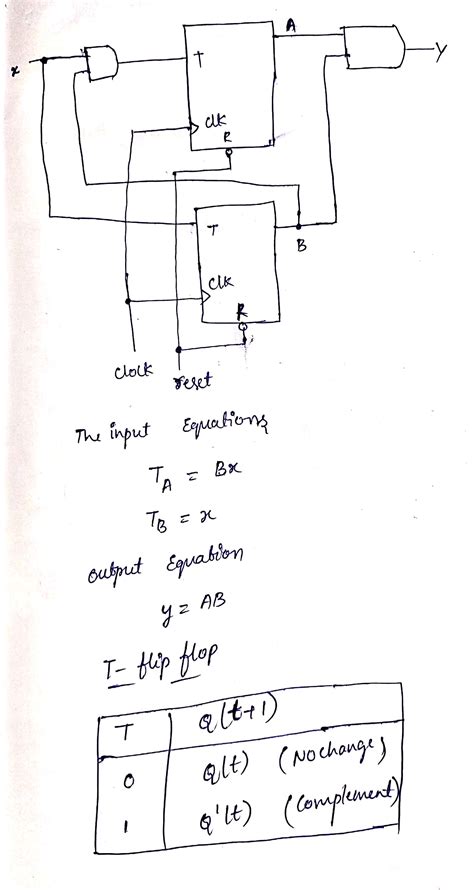 A
x
T
y
clk
R
T
B
clk
R
clock
reset
The input Equations
T_A = Bx
T_B = x
output Equation
y = AB
T- flip flop
T Q(t+1)
0 Q(t) (No change)
1 Q'(t) (complement)